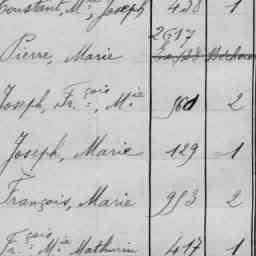 Constant, M.ie, Joseph 438 1
2617
Pierre, Marie
Joseph, Fr.çois, M.ie 2
Joseph, Marie 129 1
François, Marie 953 2
Fr.çois M.ie Mathurin 417 1